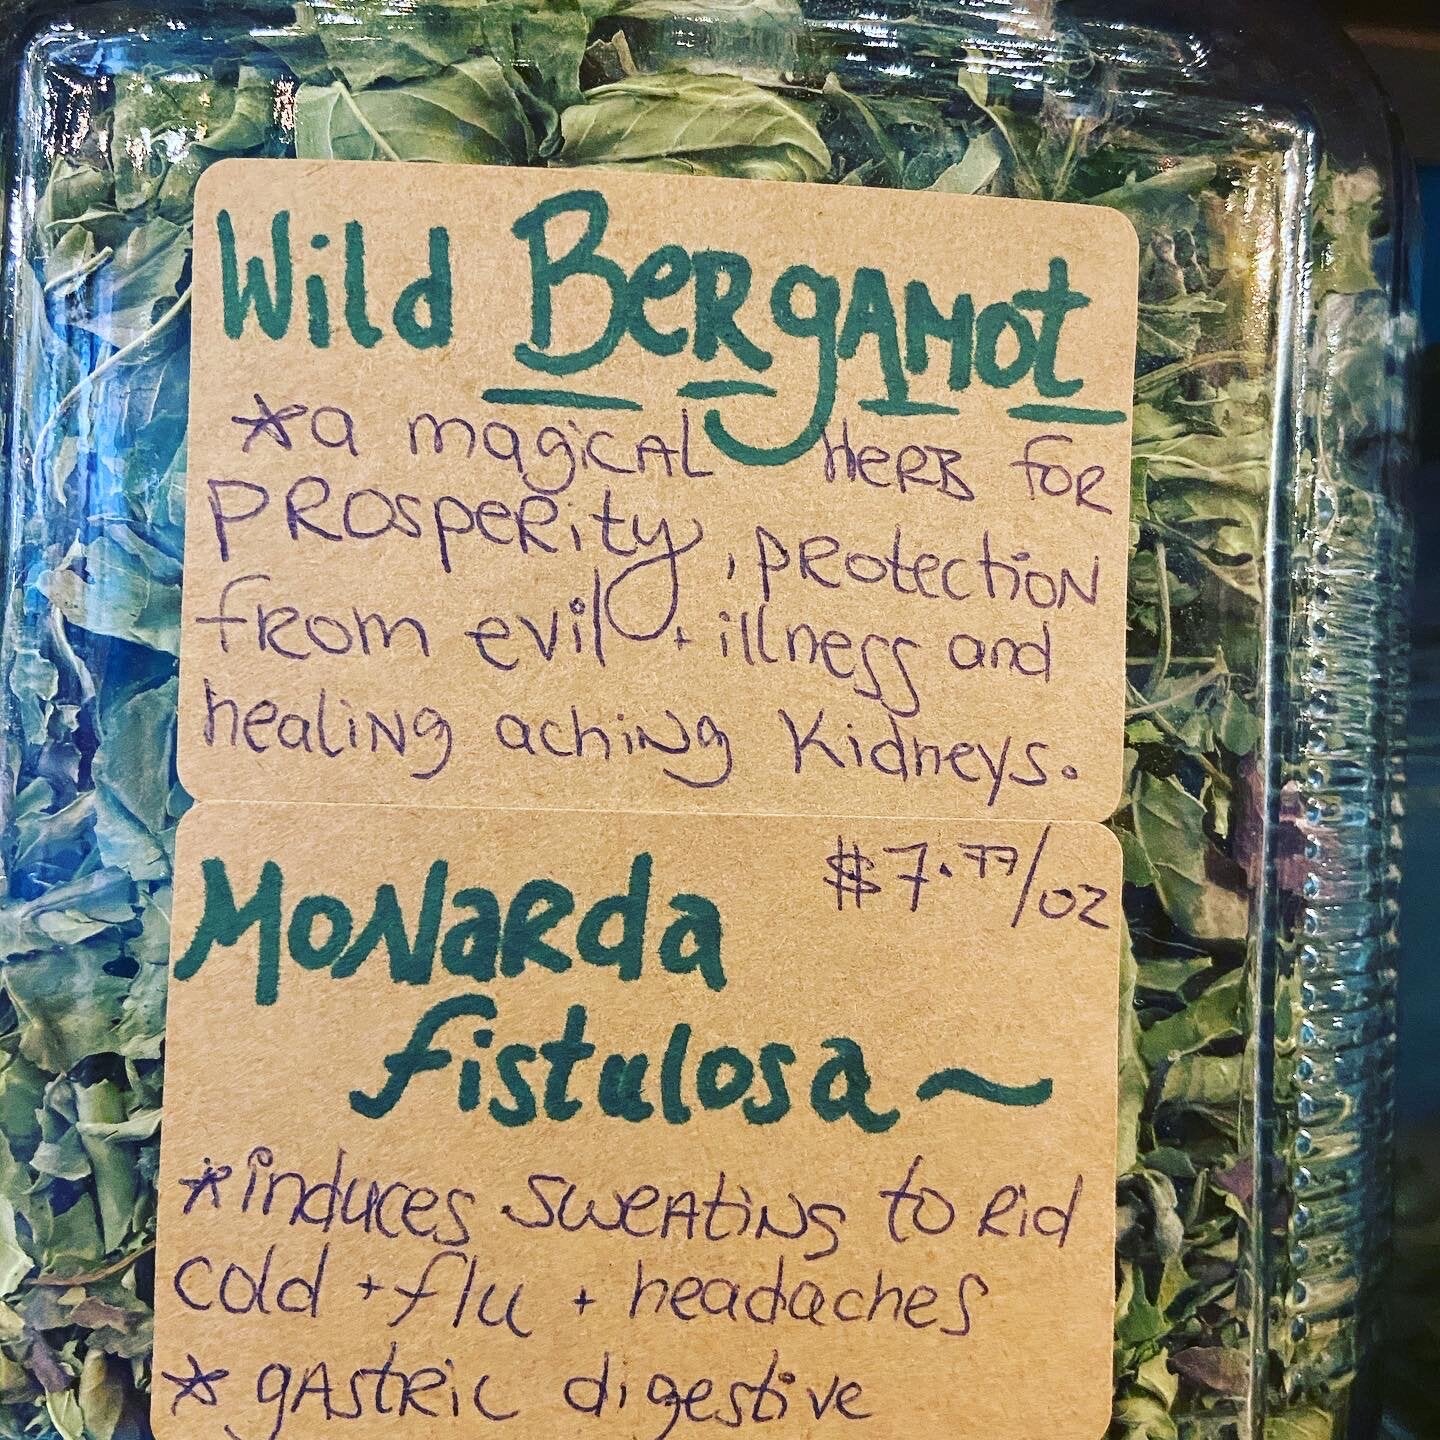 Wild Bergamot
*a magical Herb for
prosperity, protection
from evil + illness and
healing aching kidneys.
$7.77/oz
Monarda
fistulosa~
*induces sweating to rid
cold + flu + headaches
* gastric digestive